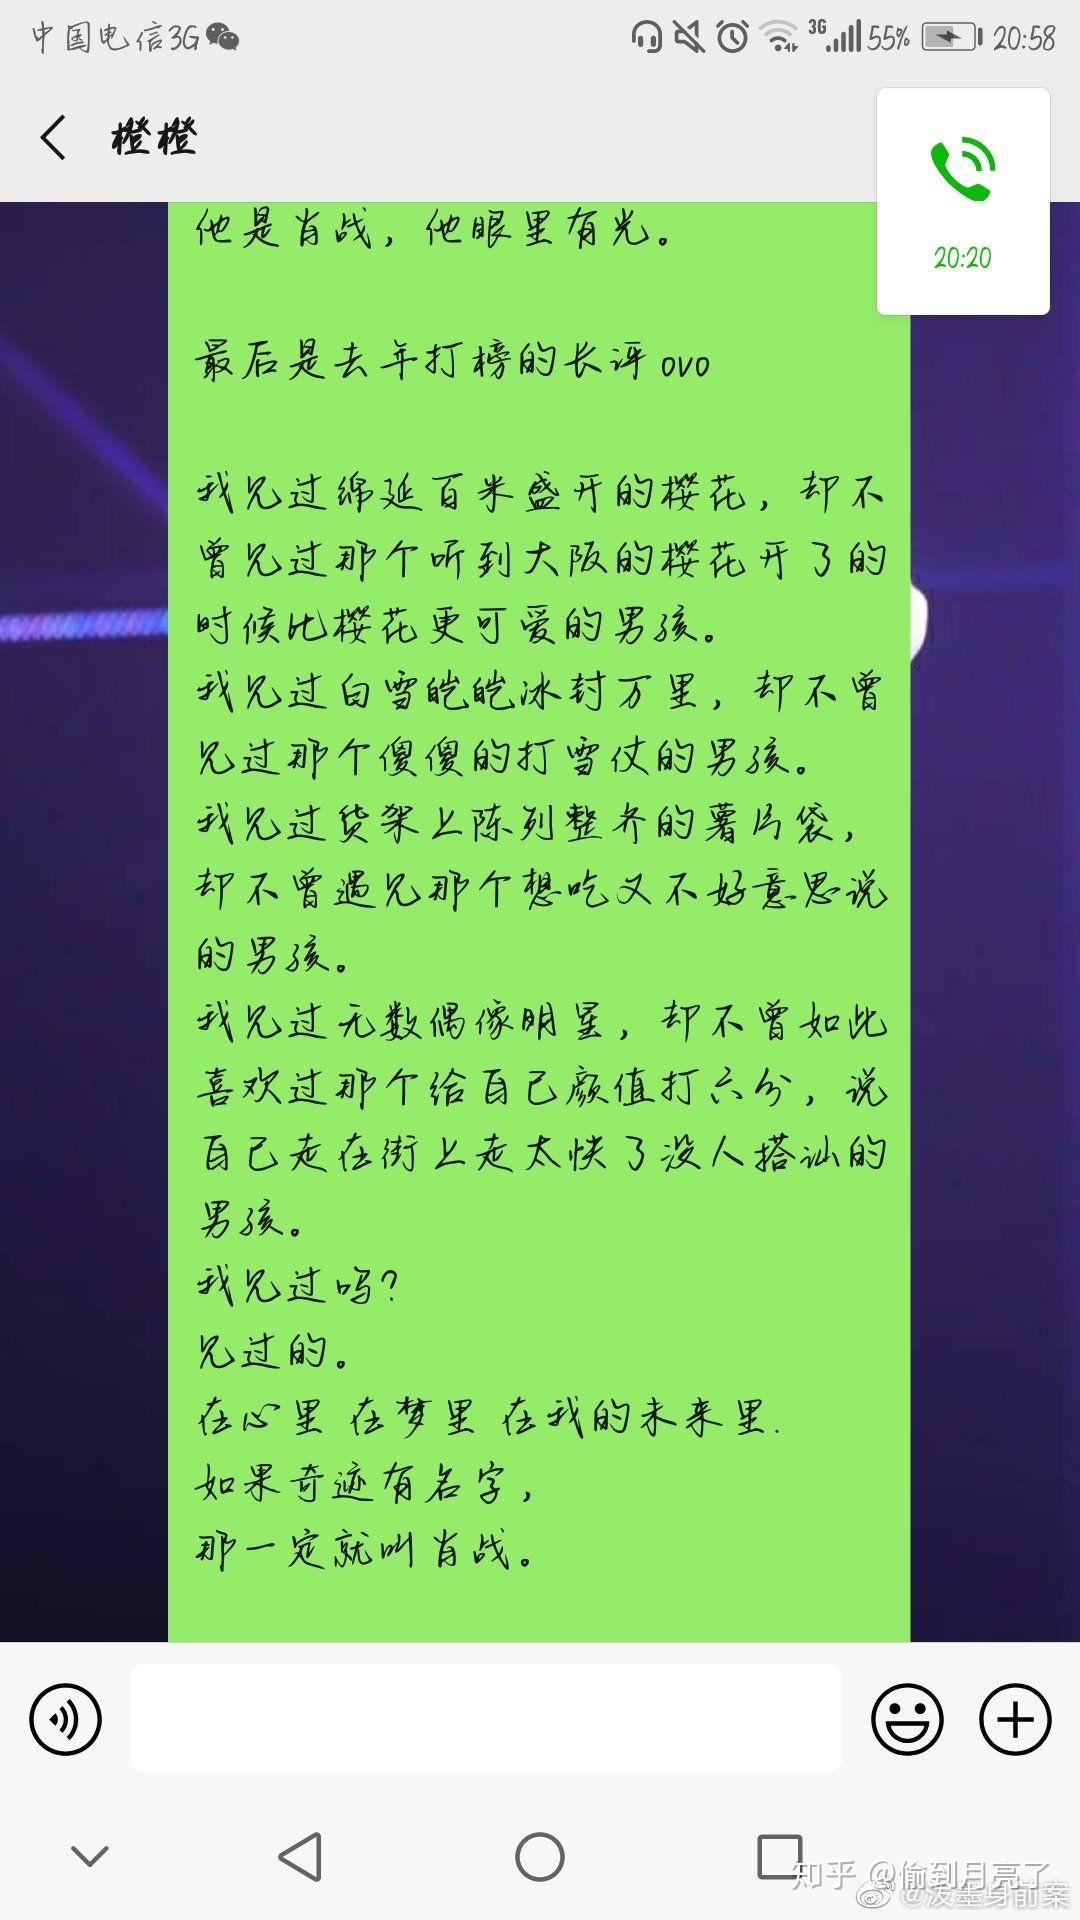 中国电信3G
3G
55%
20:58
橙橙
20:20
他是肖战，他眼里有光。
最后是去年打榜的长评ovo
我见过绵延百米盛开的樱花，却不
曾见过那个听到大阪的樱花开了的
时候比樱花更可爱的男孩。
我见过白雪皑皑冰封万里，却不曾
见过那个傻傻的打雪仗的男孩。
我见过货架上陈列整齐的薯片袋，
却不曾遇见那个想吃又不好意思说
的男孩。
我见过无数偶像明星，却不曾如此
喜欢过那个给自己颜值打六分，说
自己走在街上走太快了没人搭讪的
男孩。
我见过吗？
见过的。
在心里 在梦里 在我的未来里.
如果奇迹有名字，
那一定就叫肖战。
知乎 @偷到月亮了
@泼墨身前案